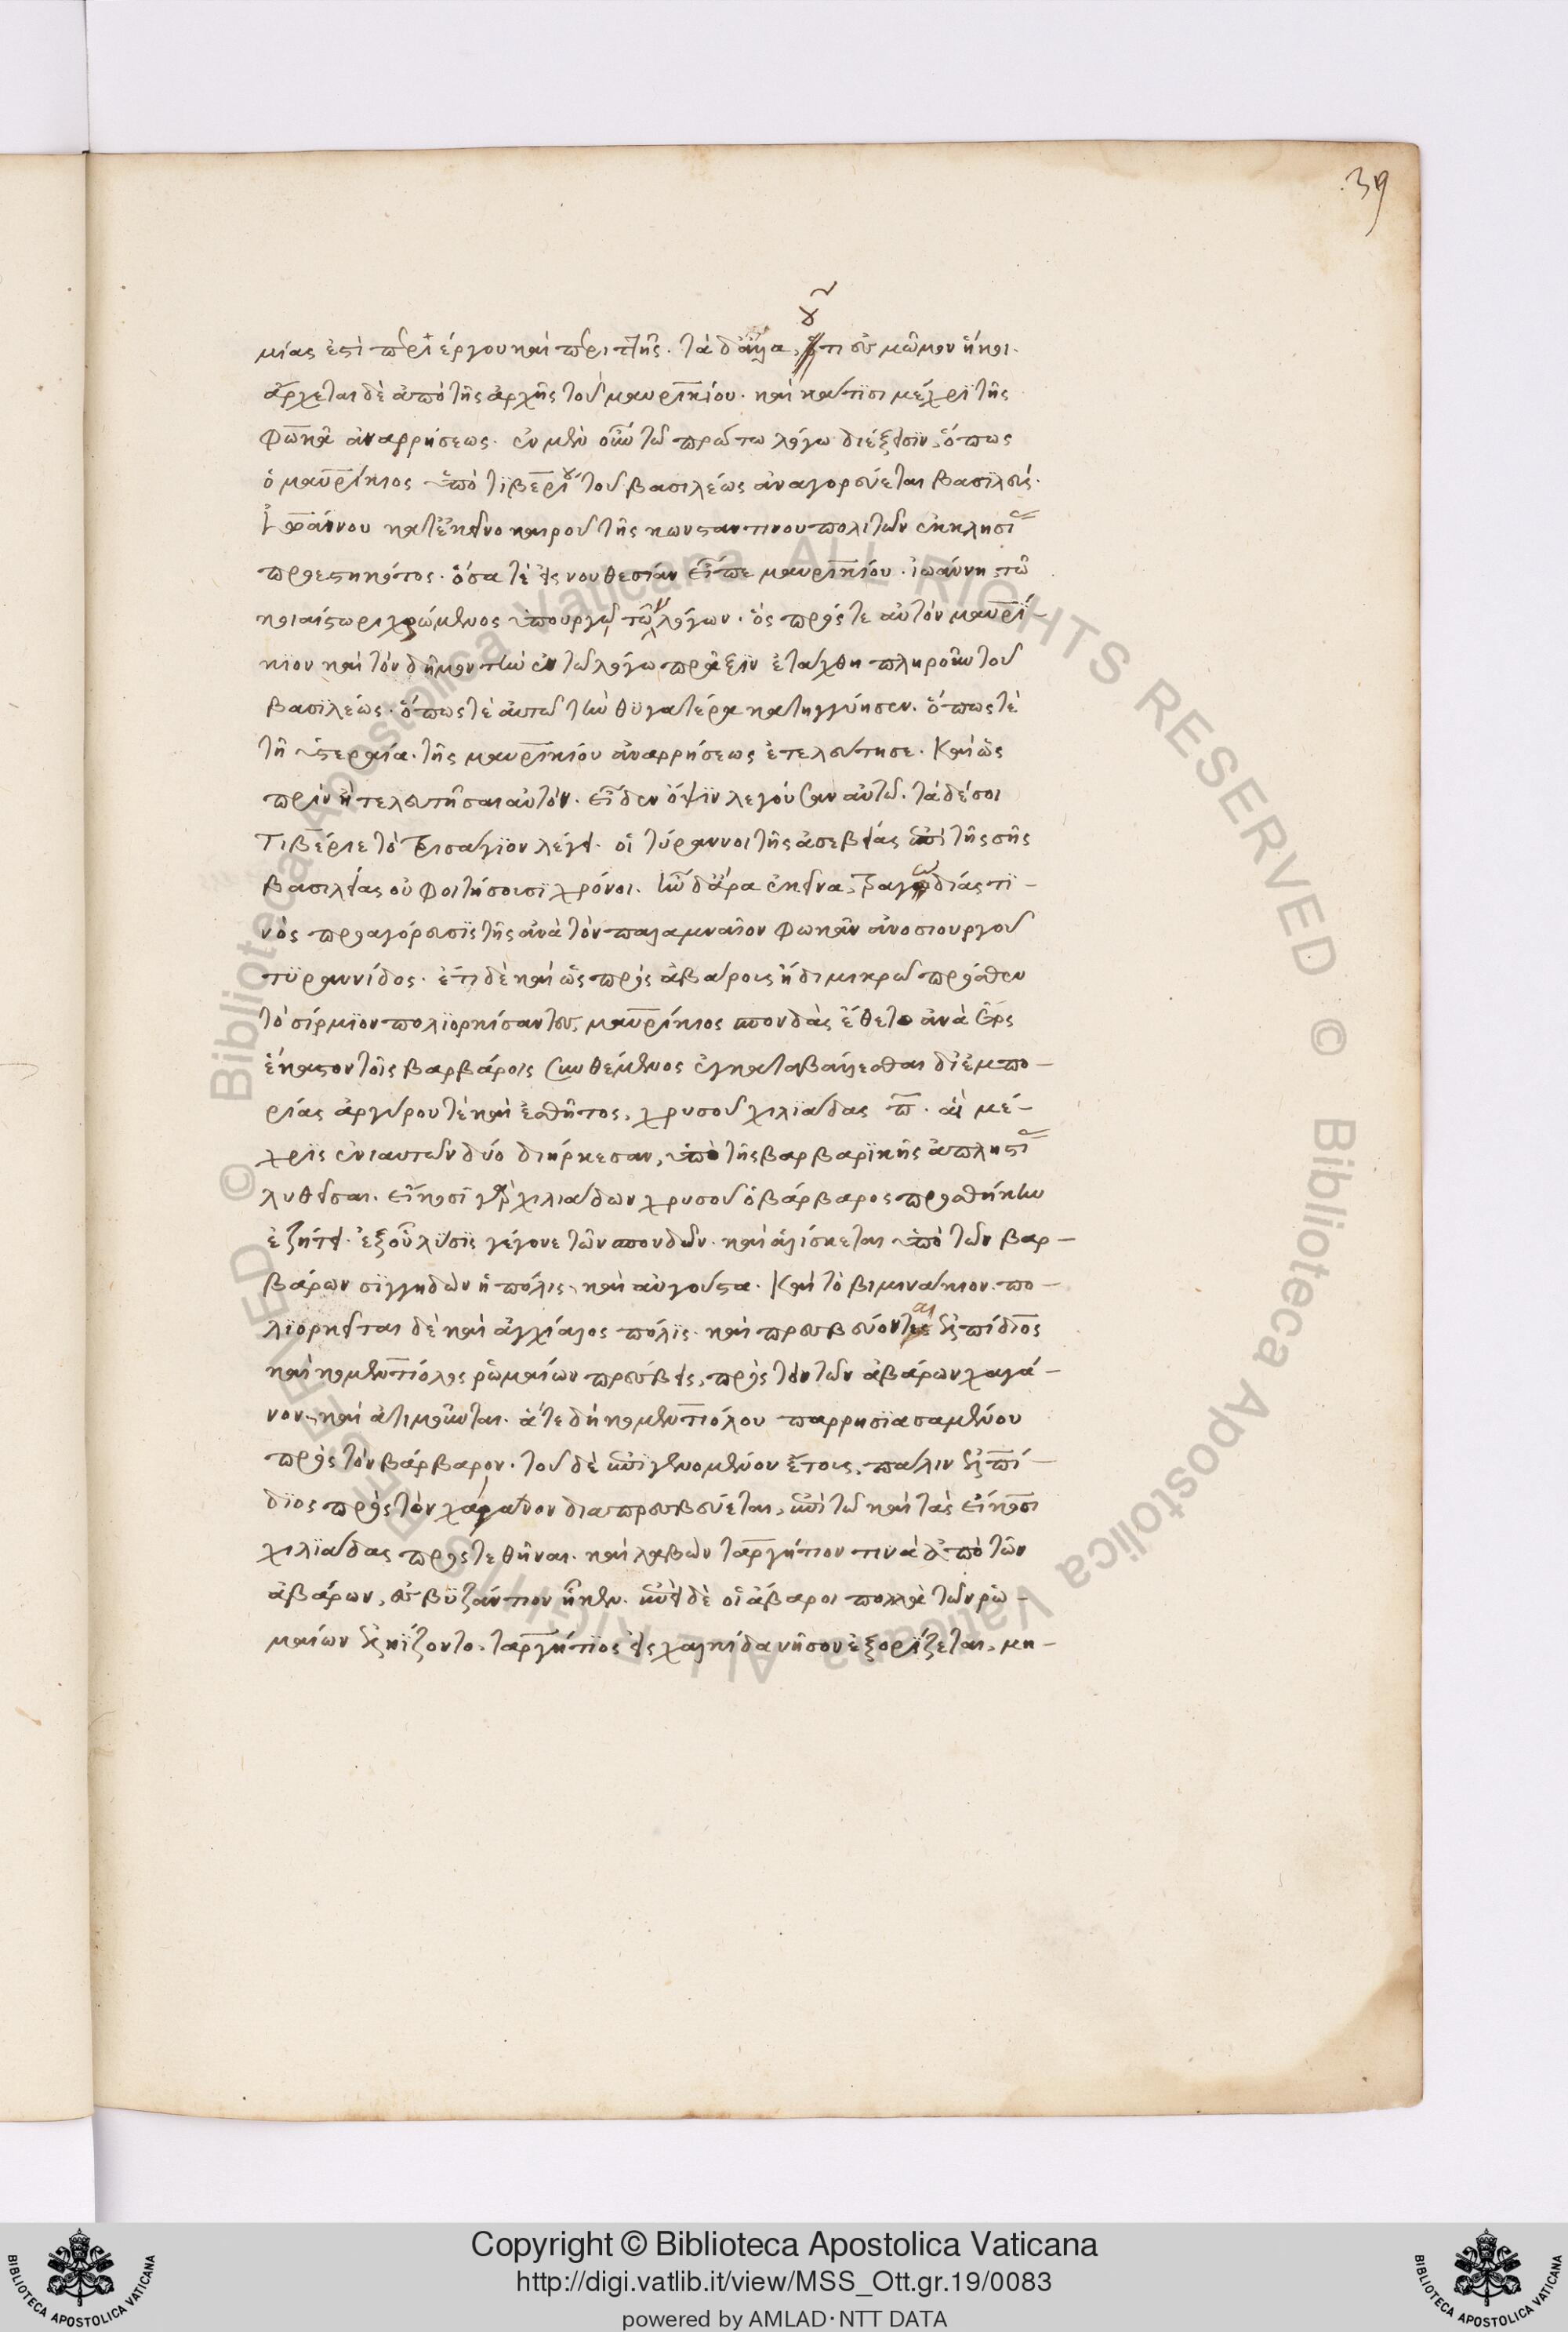 39
μίας ἐστὶ περὶ ἔργου καὶ περιττῆς. τὰ δ' ἄλλα, οὔ τι εὐ μῶμον ἥκοι.
ἄρχεται δὲ ἀπὸ τῆς ἀρχῆς τοῦ μαυρικίου. καὶ κάτεισι μέχρι τῆς
Φωκᾶ ἀναρρήσεως. ἐν μὲν οὖν τῶ πρώτω λόγω διέξεισιν, ὅπως
ὁ μαυρίκιος ὑπὸ τιβερίου τοῦ βασιλέως ἀναγορεύεται βασιλεύς.
Ἰωάννου κατ' ἐκεῖνο καιροῦ τῆς κωνσταντινουπολιτῶν ἐκκλησίας
προεστηκότος. ὅσα τὲ εἰς νουθεσίαν εἶπε μαυρικίου. ἰωάννη τῶ
κοιαίστωρι χρώμενος ὑπουργῶ τῶν λόγων. ὃς πρός τε αὐτὸν μαυρί-
κιον καὶ τὸν δῆμον τὴν ἐν τῶ λόγω πρᾶξιν ἐτάχθη πληροῦν τοῦ
βασιλέως. ὅπως τὲ αὐτῶ τὴν θυγατέρα κατηγγύησεν. ὅπως τὲ
τῆ ὑστεραία. τῆς μαυρικίου ἀναρρήσεως ἐτελεύτησε. Καὶ ὡς
πρὶν ἢ τελευτῆσαι αὐτὸν. εἶδεν ὄψιν λεγοῦσαν αὐτῶ. τάδέ σοι
Τιβέριε τὸ τρισάγιον λέγει. οἱ τύραννοι τῆς ἀσεβείας ἐπὶ τῆς σῆς
βασιλείας οὐ φοιτήσουσι χρόνοι. ἦν δ' ἄρα ἐκεῖνα, τραγωδίας τι-
νὸς προαγόρευσις τῆς ἀνὰ τὸν παλαμναῖον Φωκᾶν ἀνοσιουργοῦ
τυραννίδος. ἔτι δὲ καὶ ὡς πρὸς ἀβάροις ἤδι μικρῶ πρόσθεν
τὸ σίρμιον πολιορκίσαντας, μαυρίκιος σπονδὰς ἔθετο ἀνὰ ἔτος
ἕκαστον τοῖς βαρβάροις συνθέμενος ἐγκαταβάλλεσθαι δι' ἐμπο-
ρίας ἀργύρου τὲ καὶ ἐσθῆτος, χρυσοῦ χιλιάδας π. αἳ μέ-
χρις ἐνιαυτῶν δύο διήρκεσαν, ὑπὸ τῆς βαρβαρικῆς ἀπληστίας
λυθεῖσαι. εἴκοσι γὰρ χιλιάδων χρυσοῦ ὁ βάρβαρος προσθήκην
ἐζήτει. ἐξ οὗ λύσις γέγονε τῶν σπονδῶν. καὶ ἁλίσκεται ὑπὸ τῶν βαρ-
βάρων σιγγηδὼν ἡ πόλις, καὶ αὐγούστα. Καὶ τὸ βιμινάκιον. πο-
λιορκεῖται δὲ καὶ ἀγχίαλος πόλις. καὶ πρεσβεύονται ἐλπίδιος
καὶ κομεντίολος ῥωμαίων πρέσβεις, πρὸς τὸν τῶν ἀβάρων χαγά-
νον, καὶ ἀτιμοῦνται. ἅτε δὴ κομεντιόλου παρρησιασαμένου
πρὸς τὸν βάρβαρον. τοῦ δὲ ἐπιγενομένου ἔτους, πάλιν ἐλπί-
διος πρὸς τὸν χαγάνον διαπρεσβεύεται, ἐπὶ τῶ καὶ τὰς εἴκοσι
χιλιάδας προστεθῆναι. καὶ λαβὼν ταργήτιον τινὰ ἀπὸ τῶν
ἀβάρων, εὐ βυζάντιον ἧκεν. ἐπεὶ δὲ οἱ ἄβαροι πολλὰ τῶν ῥω-
μαίων ἐληίζοντο. ταργήτιος εἰς χαλκίδα νῆσον ἐξορίζεται, μη-
Copyright © Biblioteca Apostolica Vaticana
http://digi.vatlib.it/view/MSS_Ott.gr.19/0083
powered by AMLAD·NTT DATA